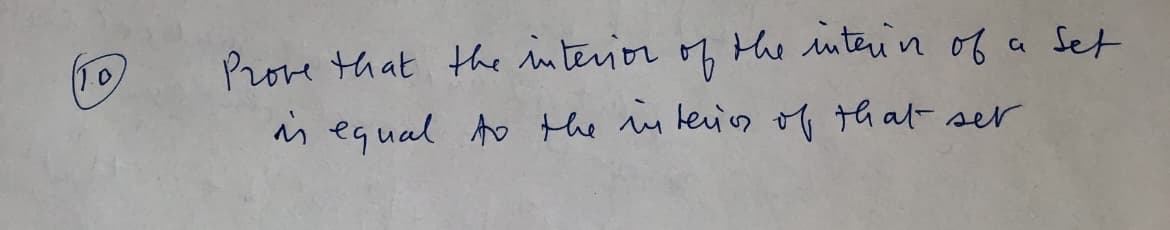 10 Prove that the interior of the interior of a set
is equal to the interior of that set